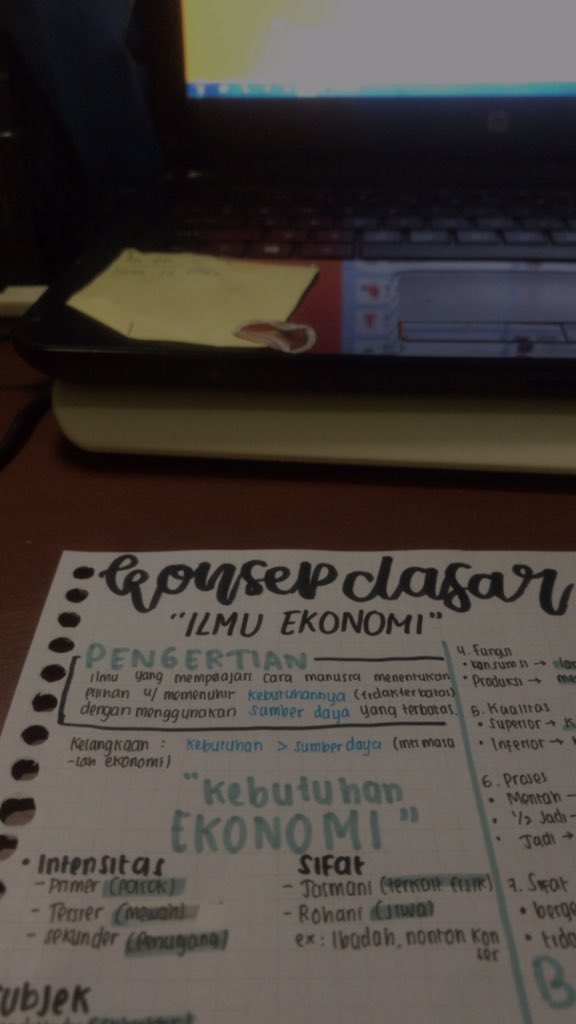 konsep dasar
"ILMU EKONOMI"
PENGERTIAN
ilmu yang mempelajari cara manusia menentukan
pilihan u/ memenuhi kebutuhannya (tidak terbatas)
dengan menggunakan sumber daya yang terbatas.
Kelangkaan : kebutuhan > sumber daya (inti masa
-lah ekonomi)
"kebutuhan
EKONOMI"
• Intensitas
- Primer (pokok)
- Tersier (mewah)
- sekunder (penunjang)
Subjek
Sifat
- Jasmani (terkait fisik)
- Rohani (jiwa)
ex : Ibadah, nonton kon
ser
4. Fungsi
• konsumsi →
• Produksi →
5. Kualitas
• Superior →
• Inferior →
6. Proses
• Mentah -
• 1/2 Jadi -
• Jadi -
7. Sifat